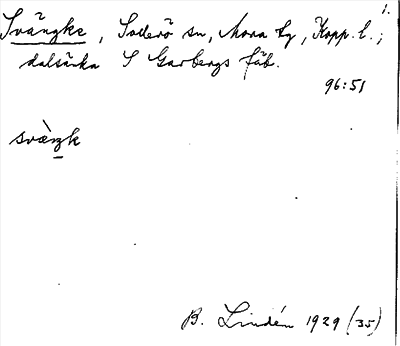 1.
Svängke, Sollerö sn, Mora tg, Kopp. l.;
dalsänka S Garbergs fäb.
96:51
svὲŋk
B. Lindén 1929 (35)